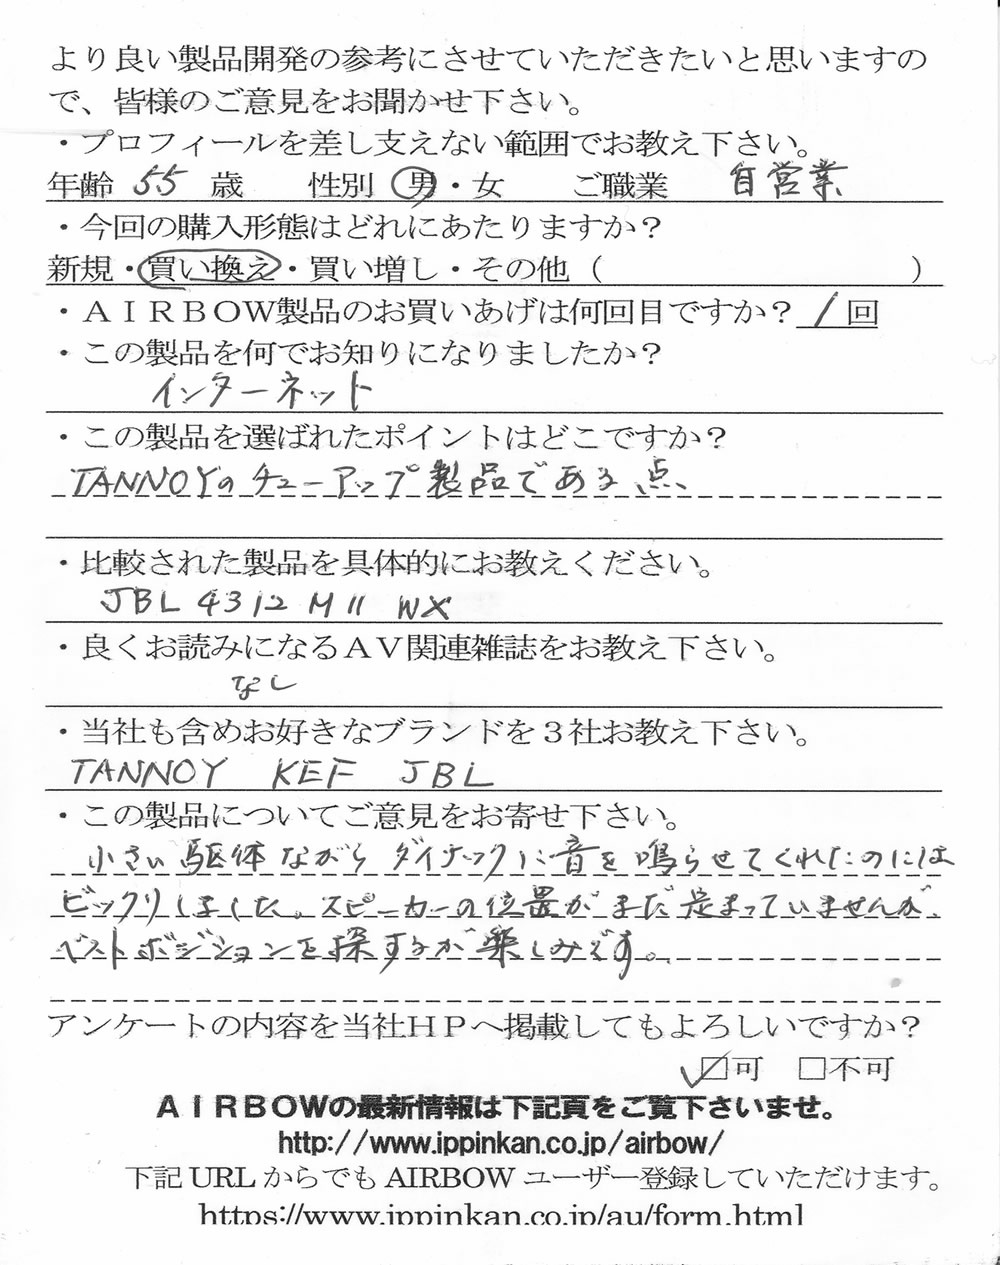 より良い製品開発の参考にさせていただきたいと思いますの
で、皆様のご意見をお聞かせ下さい。
・プロフィールを差し支えない範囲でお教え下さい。
年齢 55 歳 性別 男・女 ご職業 自営業
・今回の購入形態はどれにあたりますか？
新規・買い換え・買い増し・その他（ ）
・ＡＩＲＢＯＷ製品のお買いあげは何回目ですか？ 1回
・この製品を何でお知りになりましたか？
インターネット
・この製品を選ばれたポイントはどこですか？
TANNOYのチューアップ製品である点、
・比較された製品を具体的にお教えください。
JBL 4312 MII WX
・良くお読みになるＡＶ関連雑誌をお教え下さい。
なし
・当社も含めお好きなブランドを３社お教え下さい。
TANNOY KEF JBL
・この製品についてご意見をお寄せ下さい。
小さい駆体ながらダイナックに音を鳴らせてくれたのには
ビックリしました。スピーカーの位置がまだ定まっていませんが、
ベストポジションを探するが楽しみです。
アンケートの内容を当社ＨＰへ掲載してもよろしいですか？
☑可 □不可
ＡＩＲＢＯＷの最新情報は下記頁をご覧下さいませ。
http://www.ippinkan.co.jp/airbow/
下記 URL からでも AIRBOW ユーザー登録していただけます。
https://www.ippinkan.co.jp/au/form.html